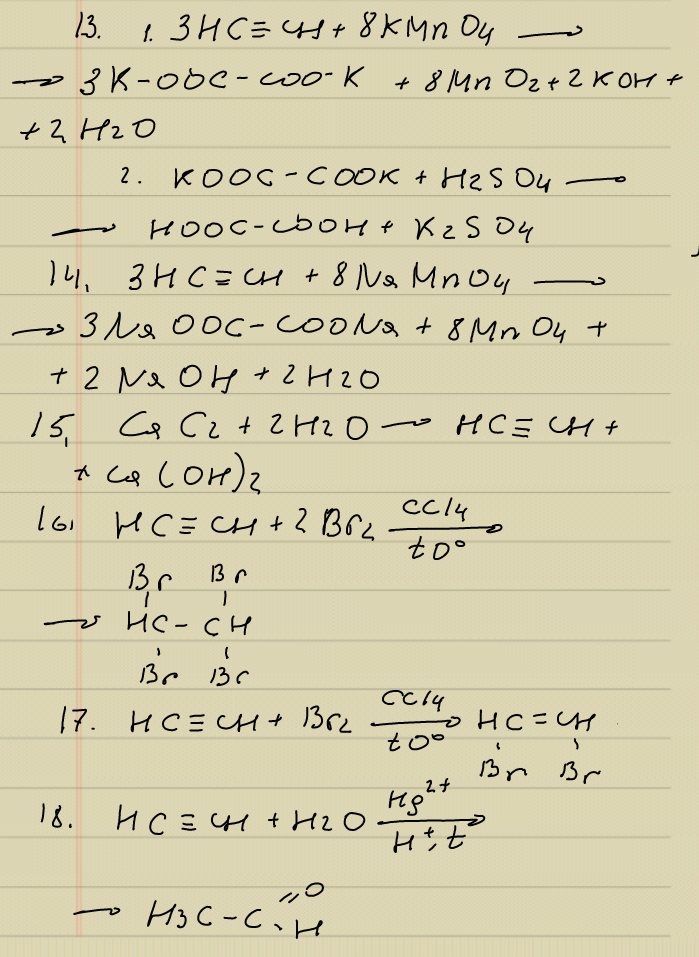 13. 1. 3HC≡CH + 8KMnO4 ⟶
⟶ 3K-OOC-COO-K + 8MnO2 + 2KOH +
+ 2H2O
2. KOOC-COOK + H2SO4 ⟶
⟶ HOOC-COOH + K2SO4
14. 3HC≡CH + 8NaMnO4 ⟶
⟶ 3NaOOC-COONa + 8MnO4 +
+ 2NaOH + 2H2O
15. CaC2 + 2H2O ⟶ HC≡CH +
+ Ca(OH)2
16. HC≡CH + 2Br2 CCl4 ⟶
t0°
Br Br
⟶ HC-CH
Br Br
17. HC≡CH + Br2 CCl4 ⟶ HC=CH
t0°
Br Br
18. HC≡CH + H2O Hg2+ ⟶
H+, t
⟶ H3C-C=O
H